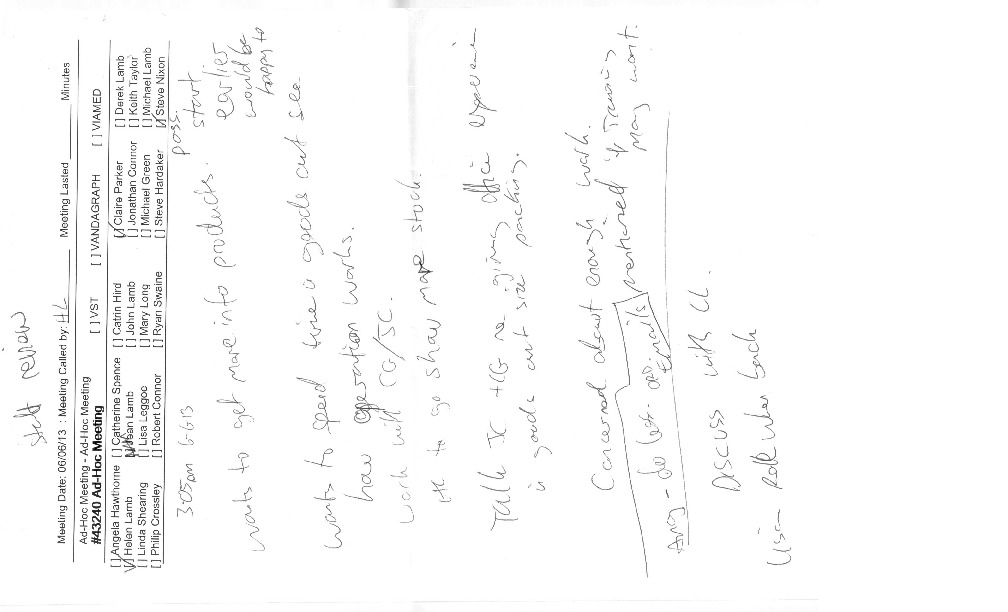 Staff review
Meeting Date: 06/06/13 : Meeting Called by: HL Meeting Lasted Minutes
Ad-Hoc Meeting - Ad-Hoc Meeting [ ] VST [ ] VANDAGRAPH [ ] VIAMED
#43240 Ad-Hoc Meeting
[ ] Angela Hawthorne [ ] Catherine Spence [ ] Catrin Hird [✓] Claire Parker [ ] Derek Lamb
[✓] Helen Lamb [ ] Jean Lamb [ ] John Lamb [ ] Jonathan Connor [ ] Keith Taylor
[ ] Linda Shearing [ ] Lisa Leggoc [ ] Mary Long [ ] Michael Green [ ] Michael Lamb
[ ] Philip Crossley [ ] Robert Connor [ ] Ryan Swaine [ ] Steve Hardaker [✓] Steve Nixon
3.05pm 6613 poss. start
wants to get more into products. earlier
would be
happy to
wants to spend time in goods out see
how operation works.
work with CG/JC.
HL to go thru more stock.
Talk JC + CG re giving office experience
in goods out size packing.
Concerned about enough work.
Emails mentioned & Training
may want.
Amy - do ord.
Discuss with CL.
back